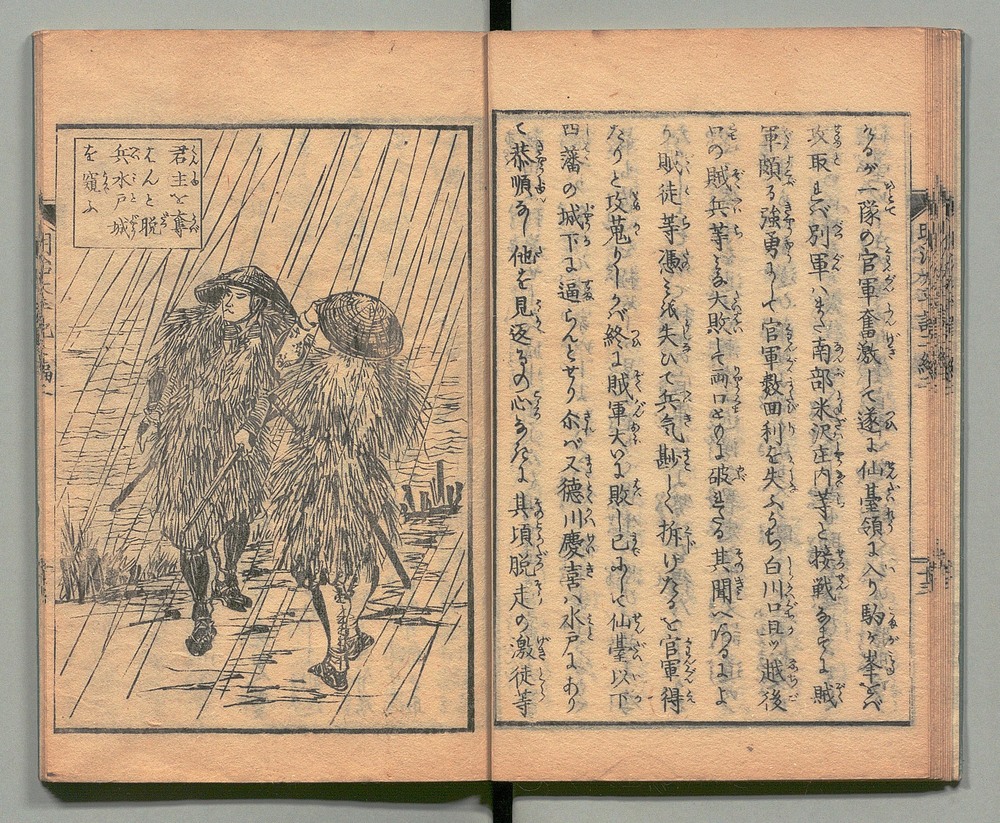 なるが一隊の官軍奮激して遂に仙臺領に入り駒ヶ峯をバ
攻取れバ別軍ハまた南部米沢庄内等と接戦なすに賊
軍頗る強勇にして官軍数回利を失ふうち白川口且ッ越後
口の賊兵等ミな大敗して両口ともに破れたる其聞へあるによ
り賊徒等憑ミを失ひて兵気尠しく拆けたるを官軍得
たりと攻蒐りしかバ終に賊軍大いに敗し已にして仙臺以下
四藩の城下に逼らんとせり尓バ又德川慶喜ハ水戸にあり
て恭順なし他を見返るの心なきに其頃脱走の激徒等
君主を奪
はんと脱
兵水戸城
を窺ふ
明治太平記二編